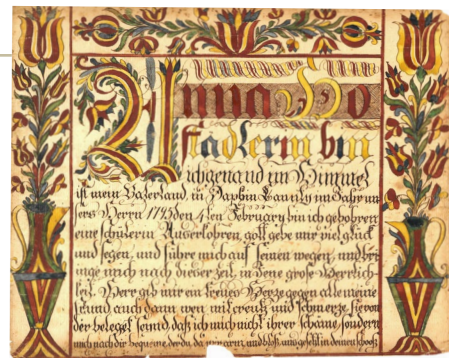 Anna Ho
stadlerin bin
ich genand im Himmel
ist mein Vaterland, in Caunty im Jahr un
sers Herrn 1793 den 4ten February bin ich gebohren
eine schülerin Auserkohren, gott gebe mir viel glück
und segen, und führe mich auf seinen wegen, und brin
ge mich nach dieser zeit, in deine grose Herrlich-
keit. Herr gib mir ein treues Herze gegen alle meine
freund auch dann wen mit creutz und schmerze sie von
der beleget seind, daß ich mich nicht ihrer schäme, sondern
mich nach dir bequeme der du da wir arm, und bloß uns gesetzt in deinen schoos